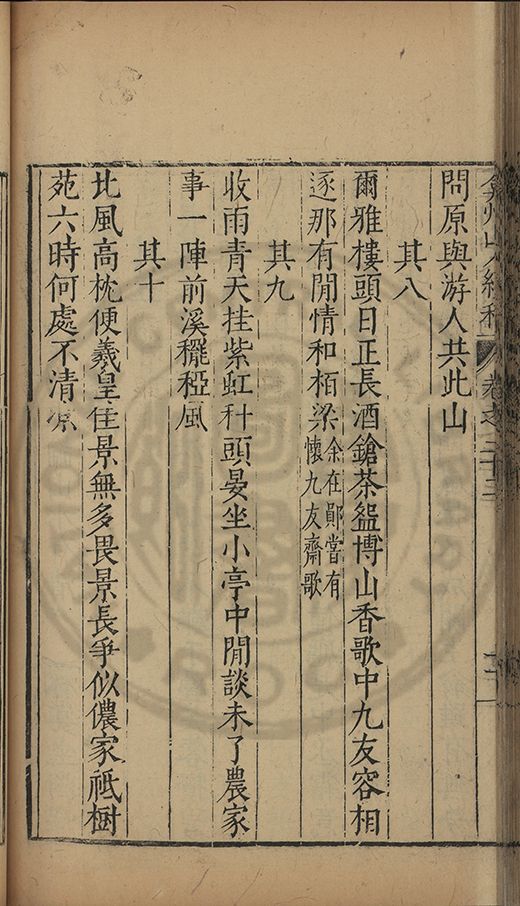 弇州山人續稿 卷之二十三
問原與游人共此山
其八
爾雅樓頭日正長酒鎗茶盌博山香歌中九友容相
逐那有閒情和栢梁余在鄖嘗有懷九友齋歌
其九
收雨青天挂紫虹科頭晏坐小亭中閒談未了農家
事一陣前溪䆉稏風
其十
北風高枕便羲皇佳景無多畏景長爭似儂家祗樹
苑六時何處不清涼